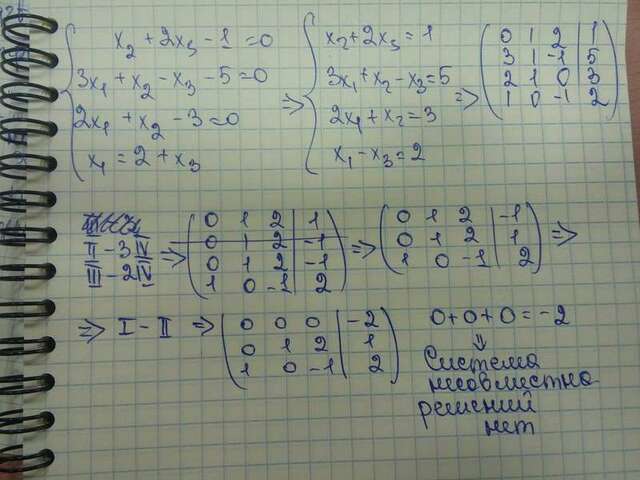 x₂ + 2x₃ - 1 = 0
3x₁ + x₂ - x₃ - 5 = 0
2x₁ + x₂ - 3 = 0
x₁ = 2 + x₃
⇒
x₂ + 2x₃ = 1
3x₁ + x₂ - x₃ = 5
2x₁ + x₂ = 3
x₁ - x₃ = 2
⇒
0 1 2 | 1
3 1 -1 | 5
2 1 0 | 3
1 0 -1 | 2
II - 3IV
III - 2IV
⇒
0 1 2 | 1
0 1 2 | -1
0 1 2 | -1
1 0 -1 | 2
⇒
0 1 2 | -1
0 1 2 | 1
1 0 -1 | 2
⇒
⇒ I - II ⇒
0 0 0 | -2
0 1 2 | 1
1 0 -1 | 2
0+0+0 = -2
⇓
Система
несовместна
решений
нет